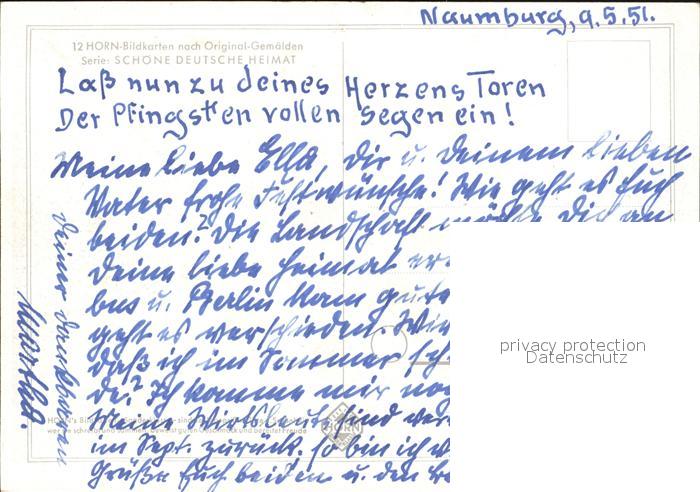 Naumburg, 9.5.51.
12 HORN-Bildkarten nach Original-Gemälden
Serie: SCHÖNE DEUTSCHE HEIMAT
Laß nun zu deines Herzens Toren
Der Pfingsten vollen Segen ein!
Meine liebe Ella, Dir u. Deinem lieben
Vater frohe Festwünsche! Wie geht es Euch
beiden? Die Landschaft möchte Dich an
Deine liebe Heimat
bus u. Berlin kam
geht es verschieden. Wie
daß ich im Sommer
da? Ich komme mir
Meine Wirtsleute sind
im Sept. zurück. So bin ich
Grüße Euch beiden u. den
Deiner dankbaren
Martha.
privacy protection
Datenschutz
HORN